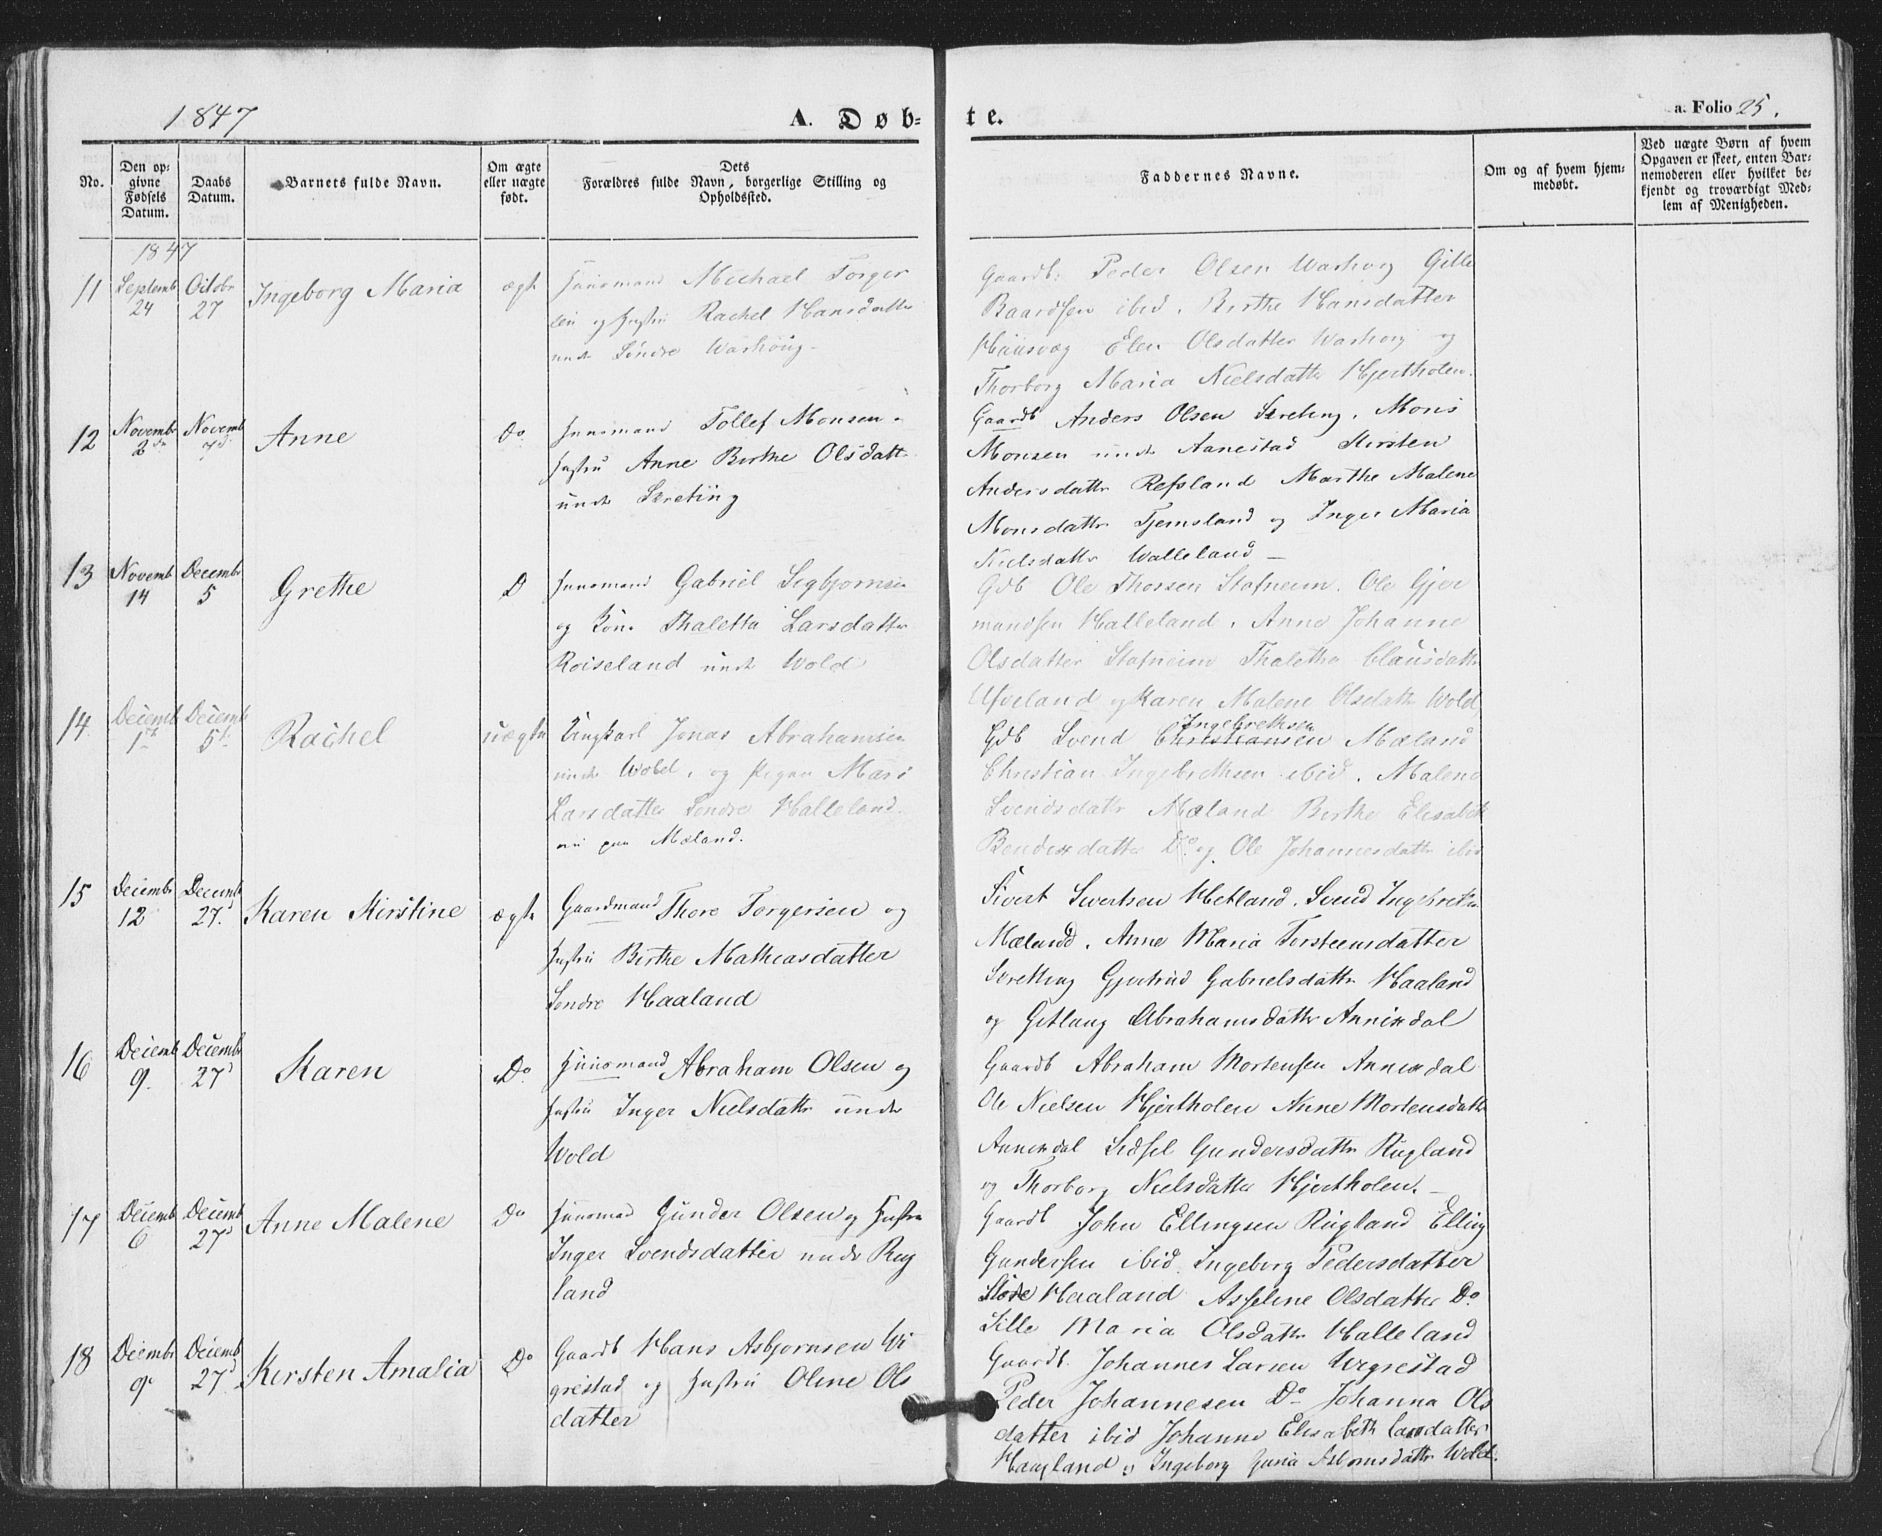 1847
A. Døb-
te.
a. Folio 25.
No.
Den op-
givne
Fødsels
Datum.
Daabs
Datum.
Barnets fulde Navn.
Om ægte
eller uægte
født.
Dets
Forældres fulde Navn, borgerlige Stilling og
Opholdssted.
Faddernes Navne.
Om og af hvem hjem-
medøbt.
Ved uægte Børn af hvem
Opgaven er skeet, enten Bar-
nemoderen eller hvilket be-
kjendt og troværdigt Med-
lem af Menigheden.
1847
11
Septemb
24
Octobr
27
Ingeborg Maria
ægte
Huusmand Michael Torger
sen og Hustru Rachel Hansdatter
unde Søndre Warhoug
Gaardb: Peder Olsen Warhoug Gitle
Baardsen ibid. Birthe Hansdatter
Elen Olsdatter Warhoug og
Thorborg Maria Nielsdattr Hjertholen.
12
Novembr
2den
Novemb
7d
Anne
Do
Huusmand Tollef Monsen
Hustru Anne Birthe Olsdattr
unde Skreting
Gaardb Anders Olsen Skreting. Mons
Monsen unde Aanestad Kirsten
Andersdattr Refsland Marthe Malene
Monsdattr Tjemsland og Inger Maria
Nielsdattr Walleland
13
Novemb
14
Decembr
5
Grethe
D
Huusmand Gabriel Sigbjørnsen
og Kone Thaletta Larsdatter
Roiseland unde Wold
Gdb Ole Thorsen Stafneim. Ole Gjer
mundsen Halleland. Anne Johanne
Olsdatter Stafneim Thaletha Clausdattr
Ufveland og Karen Malene Olsdattr Wold
14
Decemb
1st
Decemb
5t
Rachel
uægte
Ungkarl Jonas Abrahamsen
unde Wold, og Pigen Mari
Larsdatter Søndre Halleland.
nu paa Mæland.
Ingebrethsen
Gdb Svend Christiansen Mæland
Christian Ingebrethsen ibid. Malene
Svendsdattr Mæland Birthe Elisabeth
Bendixdatter Do og Ole Johannesdattr ibid
15
Decembr
12
Decemb
27.
Karen Kirstine
ægte
Gaardmand Thore Torgersen og
Hustru Birthe Mathiasdatter
Søndre Haaland
Sivert Sivertsen Hetland. Svend Ingebreths
Mæland. Anne Maria Torsteensdatter
Skretting Gjertrud Gabrielsdattr Haaland
og Gitlaug Abrahamsdattr Annisdal
16
Decemb
9.
Decembr
27d
Karen
Do.
Huusmand Abraham Olsen og
Hustru Inger Nielsdattr unde
Wold
Gaardb Abraham Mortensen Annisdal
Ole Nielsen Hjertholen Anne Mortensdattr
Annisdal Sidsel Gundersdattr Rugland
og Thorborg Nielsdatter Hjertholen.
17
Decemb
6
Decemb
27d
Anne Malene
Do
Huusmd Gunder Olsen og Hustru
Inger Svendsdatter unde Rug
land
Gaardb John Ellingsen Rugland Elling
Gundersen ibid. Ingeborg Pedersdatter
Store Haaland Asseline Olsdatter Do
Sille Maria Olsdattr Halleland
18
Decembr
9
Decemb
27d
Kirsten Amalia
Do
Gaardb Hans Asbjornsen Wi
grestad og Hustru Oline Ols
datter
Gaardb. Johannes Larsen Wigrestad
Peder Johannesen Do Johanna Ols
datter ibid Johanne Elisabeth Larsdatter
Haugland og Ingeborg Guria Asbornsdattr Wold.